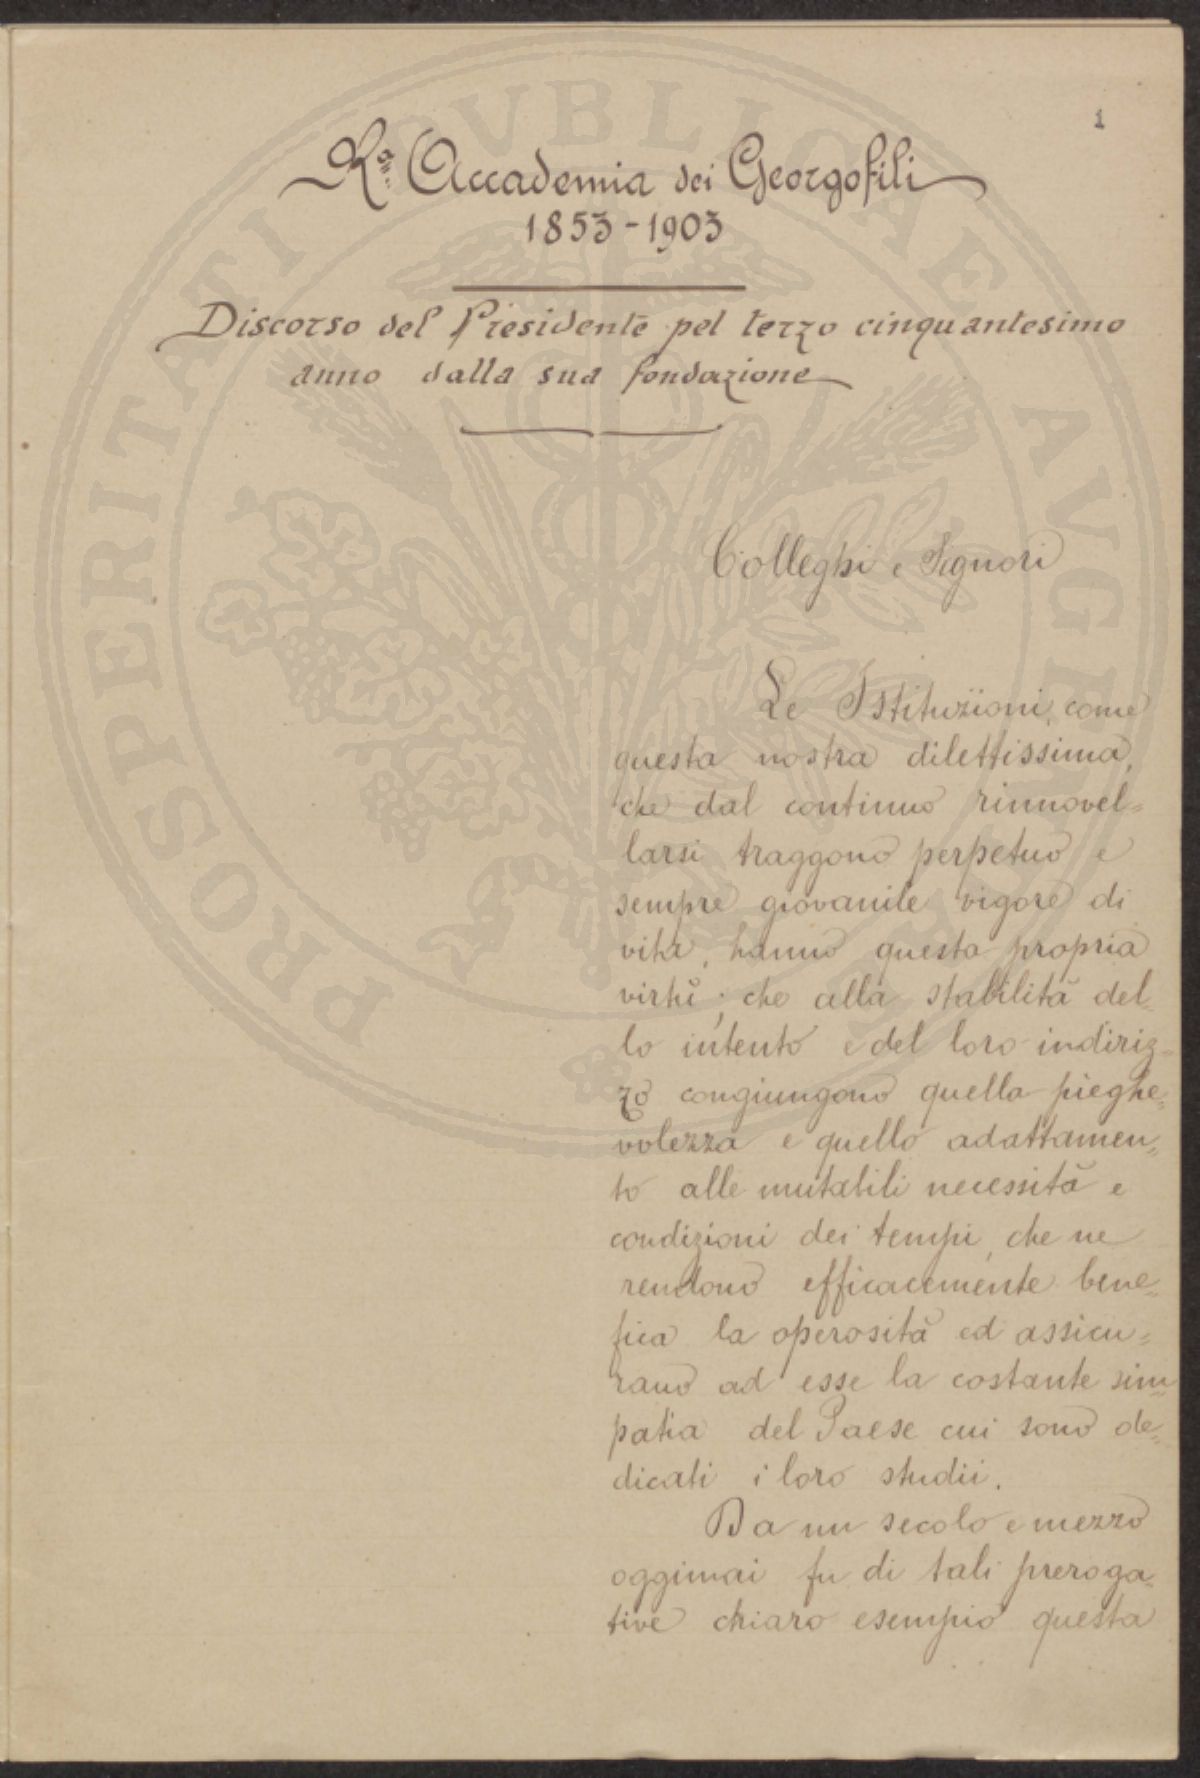 1
Rª Accademia dei Georgofili
1853-1903
Discorso del Presidente pel terzo cinquantesimo
anno dalla sua fondazione
Colleghi e Signori
Le Istituzioni, come
questa nostra dilettissima,
che dal continuo rinnovel=
larsi traggono perpetuo e
sempre giovanile vigore di
vita, hanno questa propria
virtù; che alla stabilità del=
lo intento e del loro indiriz=
zo congiungono quella pieghe=
volezza e quello adattamen=
to alle mutabili necessità e
condizioni dei tempi, che ne
rendono efficacemente bene=
fica la operosità ed assicu=
rano ad esse la costante sim=
patia del Paese cui sono de=
dicati i loro studii.
Da un secolo e mezzo
oggimai fu di tali preroga=
tive chiaro esempio questa
PROSPERITATI PVBLICAE AVGENDAE